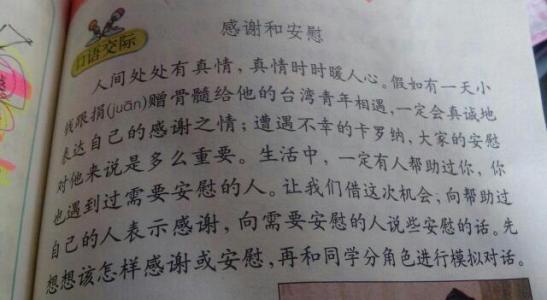 感谢和安慰
口语交际
人间处处有真情，真情时时暖人心。假如有一天小
钱跟捐(juān)赠骨髓给他的台湾青年相遇，一定会真诚地
表达自己的感谢之情；遭遇不幸的卡罗纳，大家的安慰
对他来说是多么重要。生活中，一定有人帮助过你，你
也遇到过需要安慰的人。让我们借这次机会，向帮助过
自己的人表示感谢，向需要安慰的人说些安慰的话。先
想想该怎样感谢或安慰，再和同学分角色进行模拟对话。